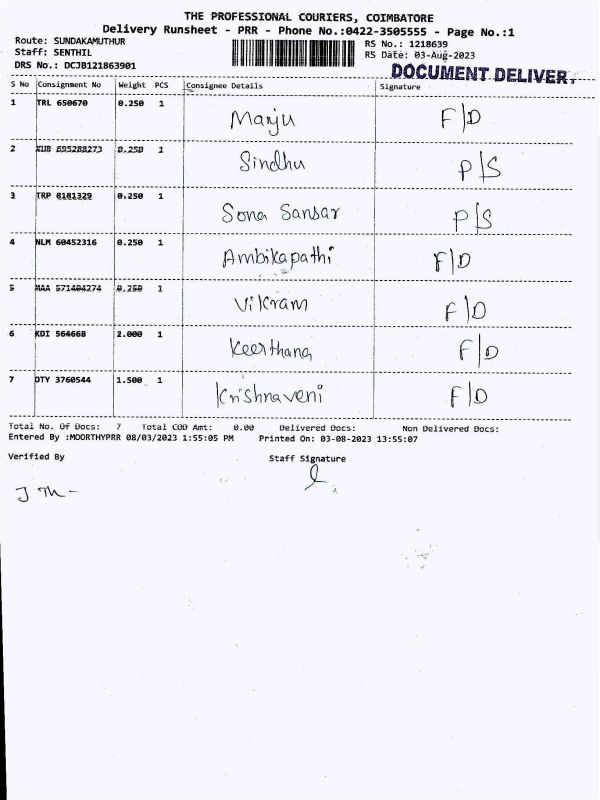 THE PROFESSIONAL COURIERS, COIMBATORE
Delivery Runsheet - PRR - Phone No.:0422-3505555 - Page No.:1
Route: SUNDAKAMUTHUR RS No.: 1218639
Staff: SENTHIL RS Date: 03-Aug-2023
DRS No.: DCJB121863901 DOCUMENT DELIVER.
S No Consignment No Weight PCS Consignee Details Signature
1 TRL 650670 0.250 1 Manju F/D
2 0.250 1 Sindhu P/S
3 TRP 8181329 0.250 1 Sona Sansar P/S
4 NLM 60452316 0.250 1 Ambikapathi F/D
5 MAA 571404274 0.250 1 Vikram F/D
6 KDI 564668 2.000 1 Keerthana F/D
7 DTY 3760544 1.500 1 Krishnaveni F/D
Total No. Of Docs: 7 Total COD Amt: 0.00 Delivered Docs: Non Delivered Docs:
Entered By :MOORTHYPRR 08/03/2023 1:55:05 PM Printed On: 03-08-2023 13:55:07
Verified By Staff Signature